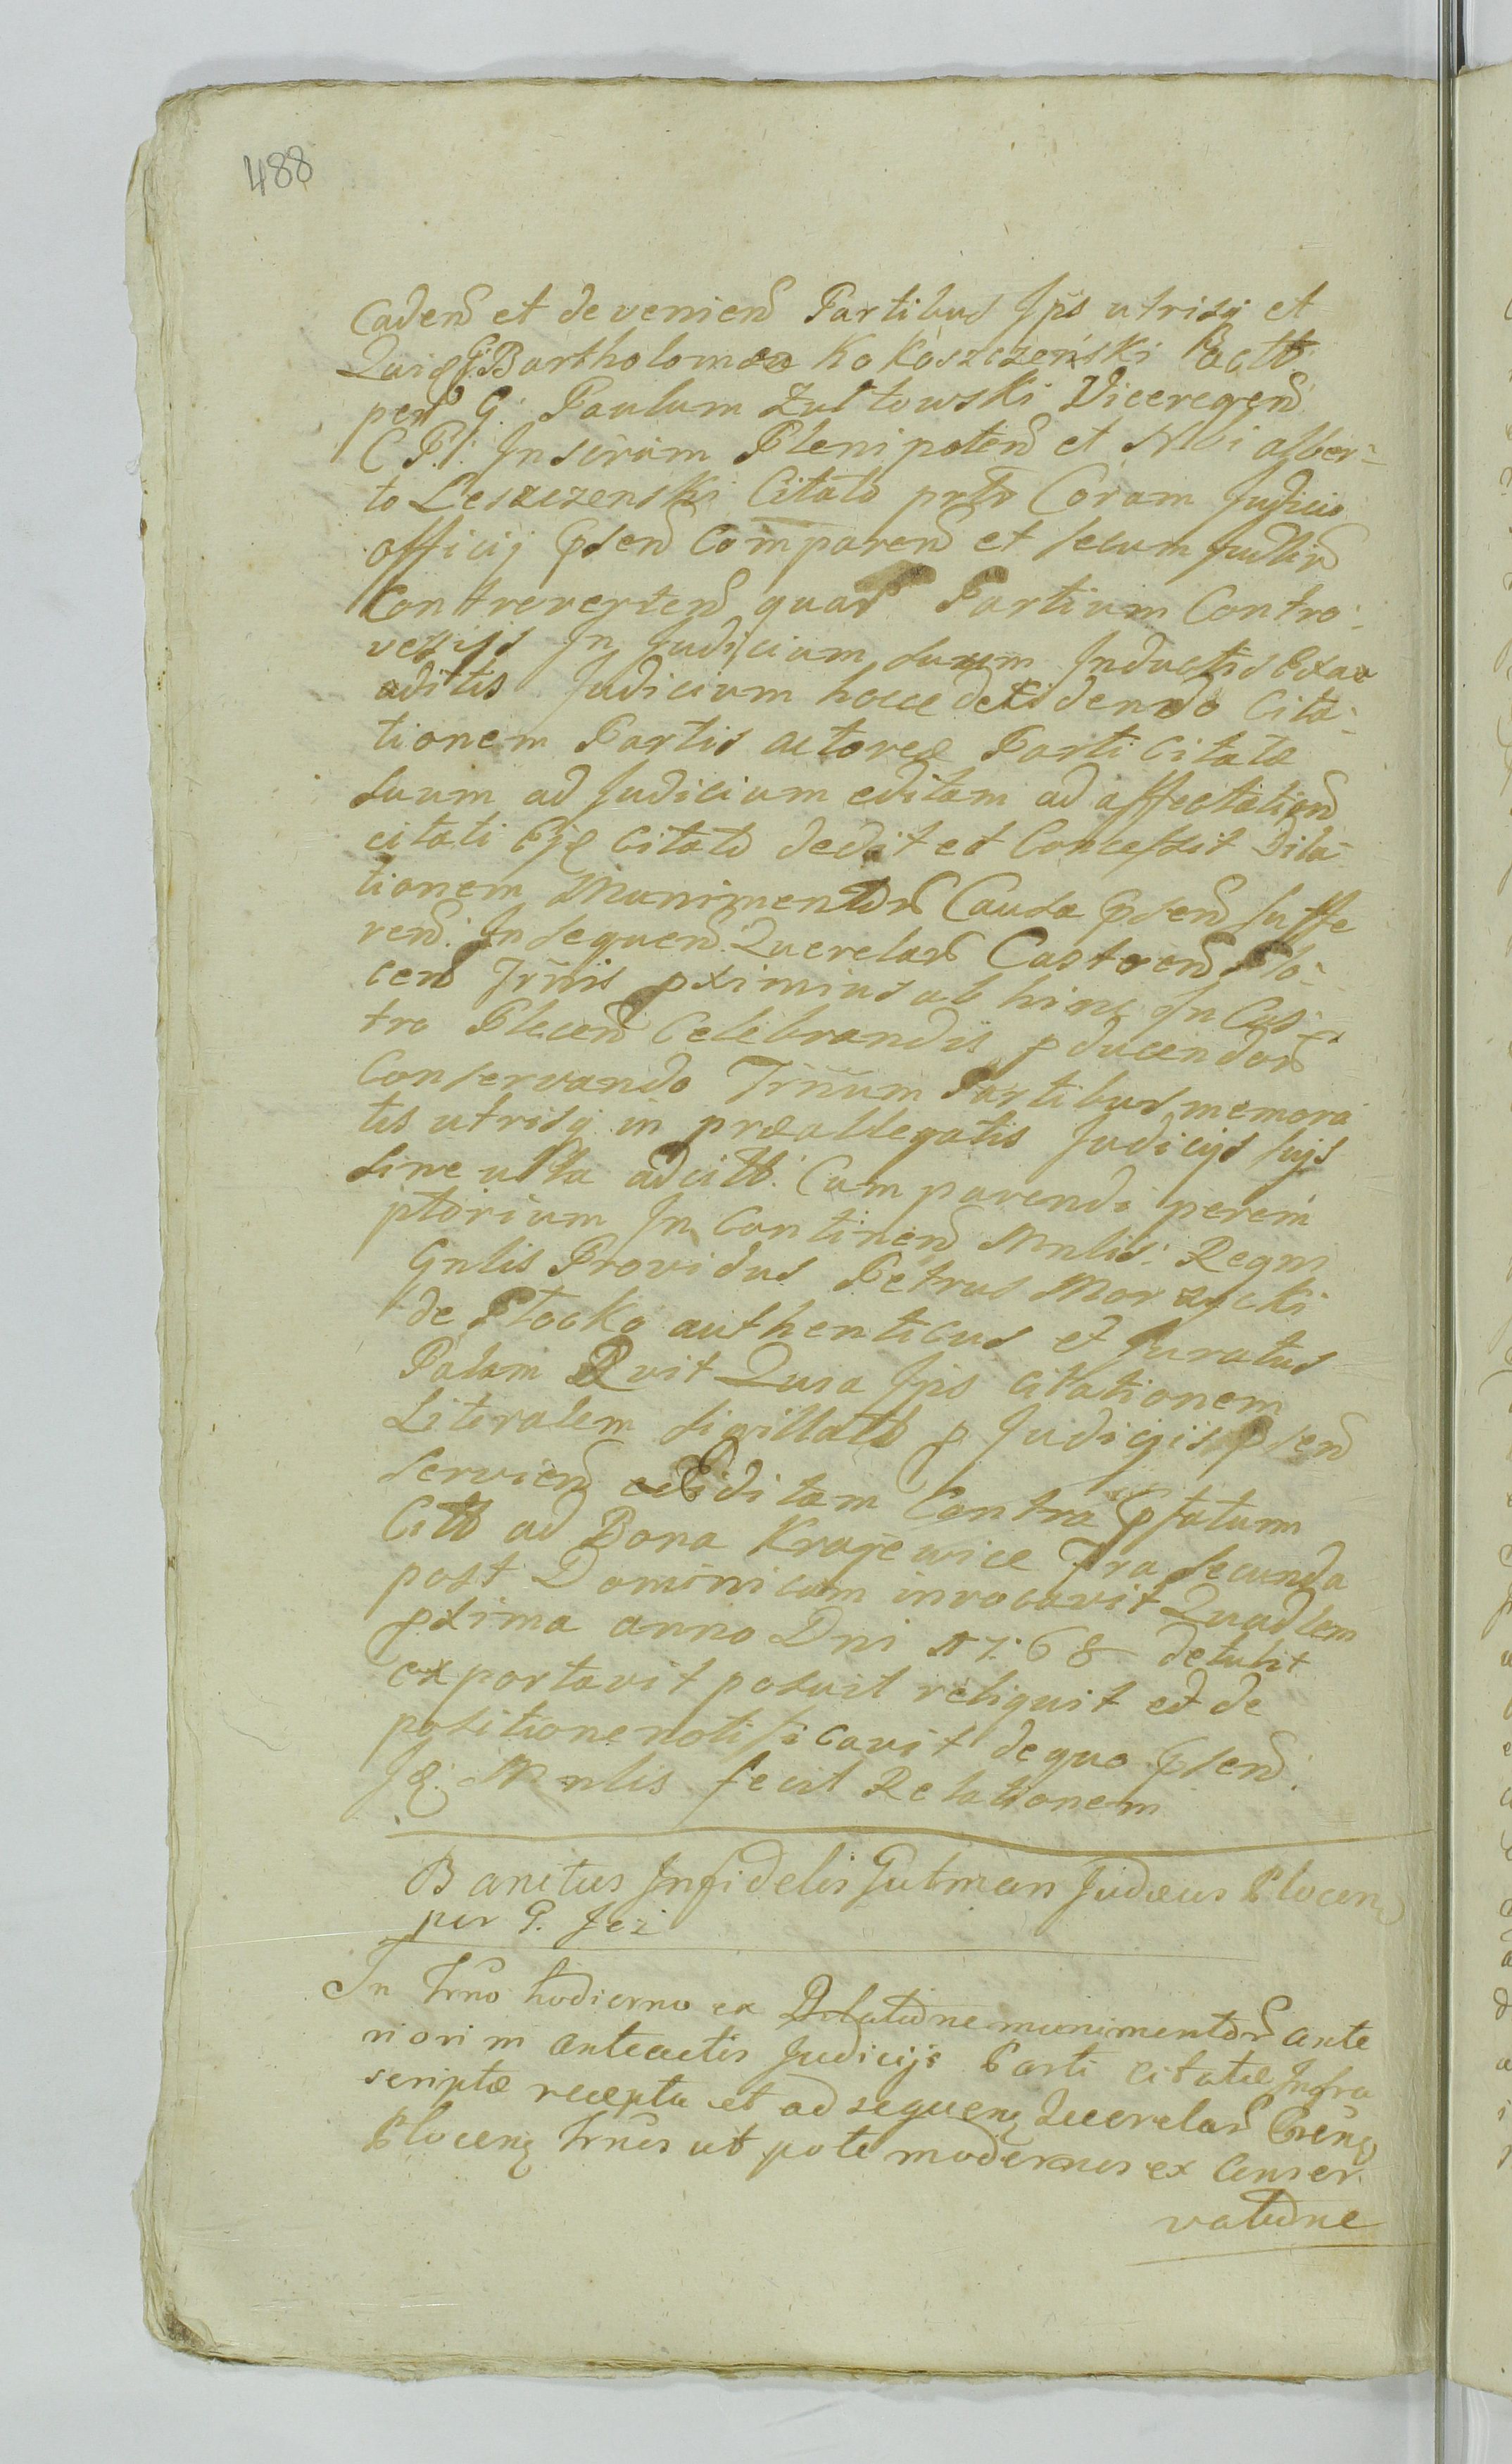 488
Cadend et deveniend Partibus Ips utrisq et
Bartholomæo Kokoszczeński Actt
per G: Paulum Zultowski Viceregend
C P: Inscrum Plenipotend et Nbi alber-
to Leszczenski Citato prto Coram Judicio
officij Psend Comparend et secum Judlir
Controvertend quar Partium Contro-
versijs In Judicium suum Inductis Exau
aditis Judicium hocce decidendo Cita-
tionem Partis actoreæ Parti Citatæ
suum ad Judicium editam ad affectationd
citati Ejq citato dedit et Concessit Dila-
tionem Munimentor Causæ Psend suffe
rend: In sequend: Querelar Castrend Plo-
cend Trmis pximius ab hinc In Cas-
tro Plocend Celebrandis pducendor
Conservando Trmum Partibus memora
tis utrisq in præallegatis Judicijs sujs
sine ulla adcitt: Comparendi perem
ptorium In Continend Mnlis: Regni
Gnlis Providus Petrus Morzycki
de Plocko authenticus et Juratus
Palam Rvit Quia Ips citationem
Literalem sigillatt p Judicijs Psend
serviend edditam Contra Pfatum
Citt ad Bona Krajewice Fra secunda
post Dominicam invocavit Quadlem
pxima anno Dni 1768 detulit
exportavit posuit reliquit et de
positione notificavit de quo Psend:
Mnlis fecit Relationem
Banitus Infidelis Gutman Judæus Plocen
per G. Jez
In Trno hodierno ex Dilatione munimentor ante
riori in anteactis Judicijs Parti citatæ Infra
scriptæ recepta et ad sequen Querelar Cren
Plocen Trnis ut pote modernis ex Conser
vatione